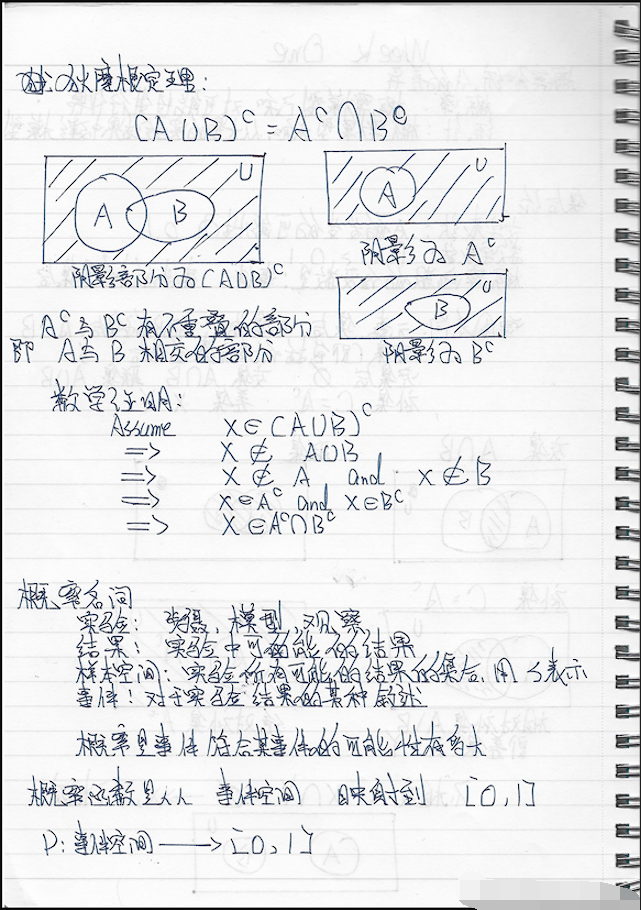 狄摩根定理：
(A∪B)ᶜ = Aᶜ∩Bᶜ
A B U
阴影部分为(A∪B)ᶜ
A U
阴影为 Aᶜ
B U
阴影为 Bᶜ
Aᶜ与Bᶜ有不重叠的部分
即 A与B 相交的部分
数学证明：
Assume X∈(A∪B)ᶜ
=> X∉ A∪B
=> X∉ A and X∉B
=> X∈Aᶜ and X∈Bᶜ
=> X∈Aᶜ∩Bᶜ
概率名词
实验： 步骤，模型，观察
结果： 实验中可能的结果
样本空间：实验所有可能的结果的集合，用S表示
事件：对于实验结果的某种叙述
概率是事件符合某事件的可能性有多大
概率函数是从 事件空间 映射到 [0,1]
P：事件空间⟶[0,1]